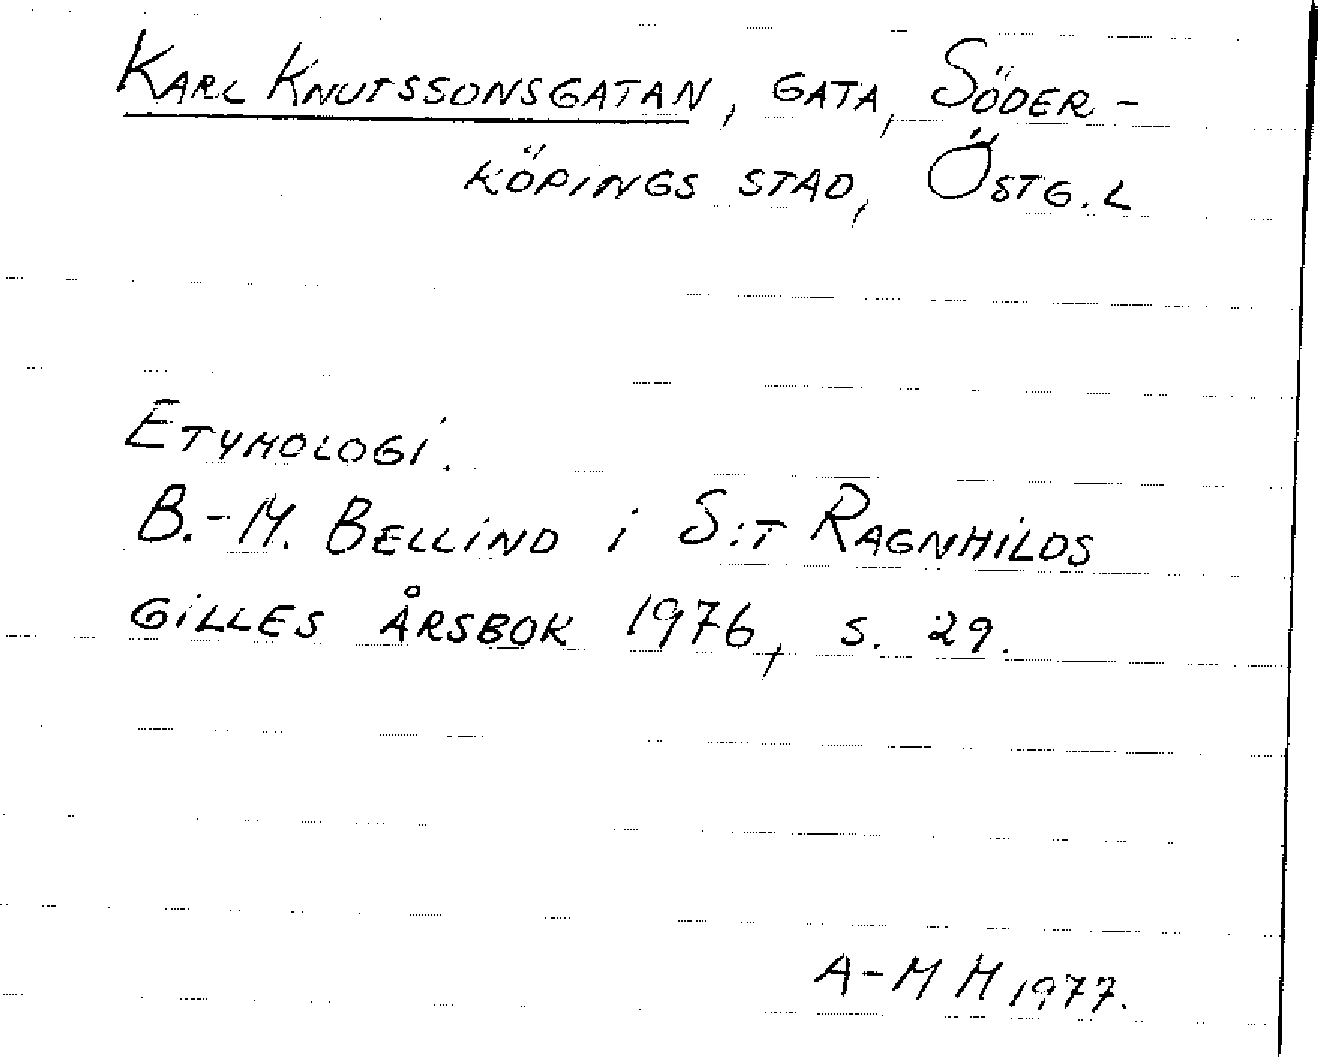 KARL KNUTSSONSGATAN, GATA, SÖDER-
KÖPINGS STAD, ÖSTG. L
ETYMOLOGI.
B.-M. BELLIND i S:T RAGNHILDS
GILLES ÅRSBOK 1976, s. 29.
A-M H 1977.